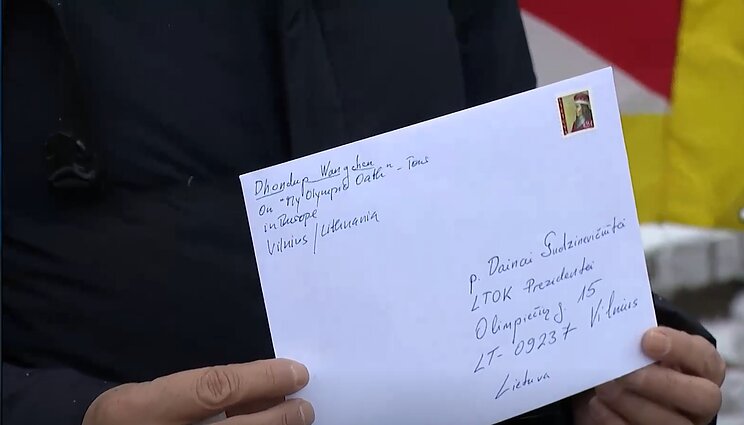 Dhondup Wangchen
On "My Olympic Oath" - Tour
in Europe
Vilnius/Lithuania
p. Dainai Gudzinevičiūtei
LTOK Prezidentei
Olimpiečių g. 15
LT-09237 Vilnius
Lietuva